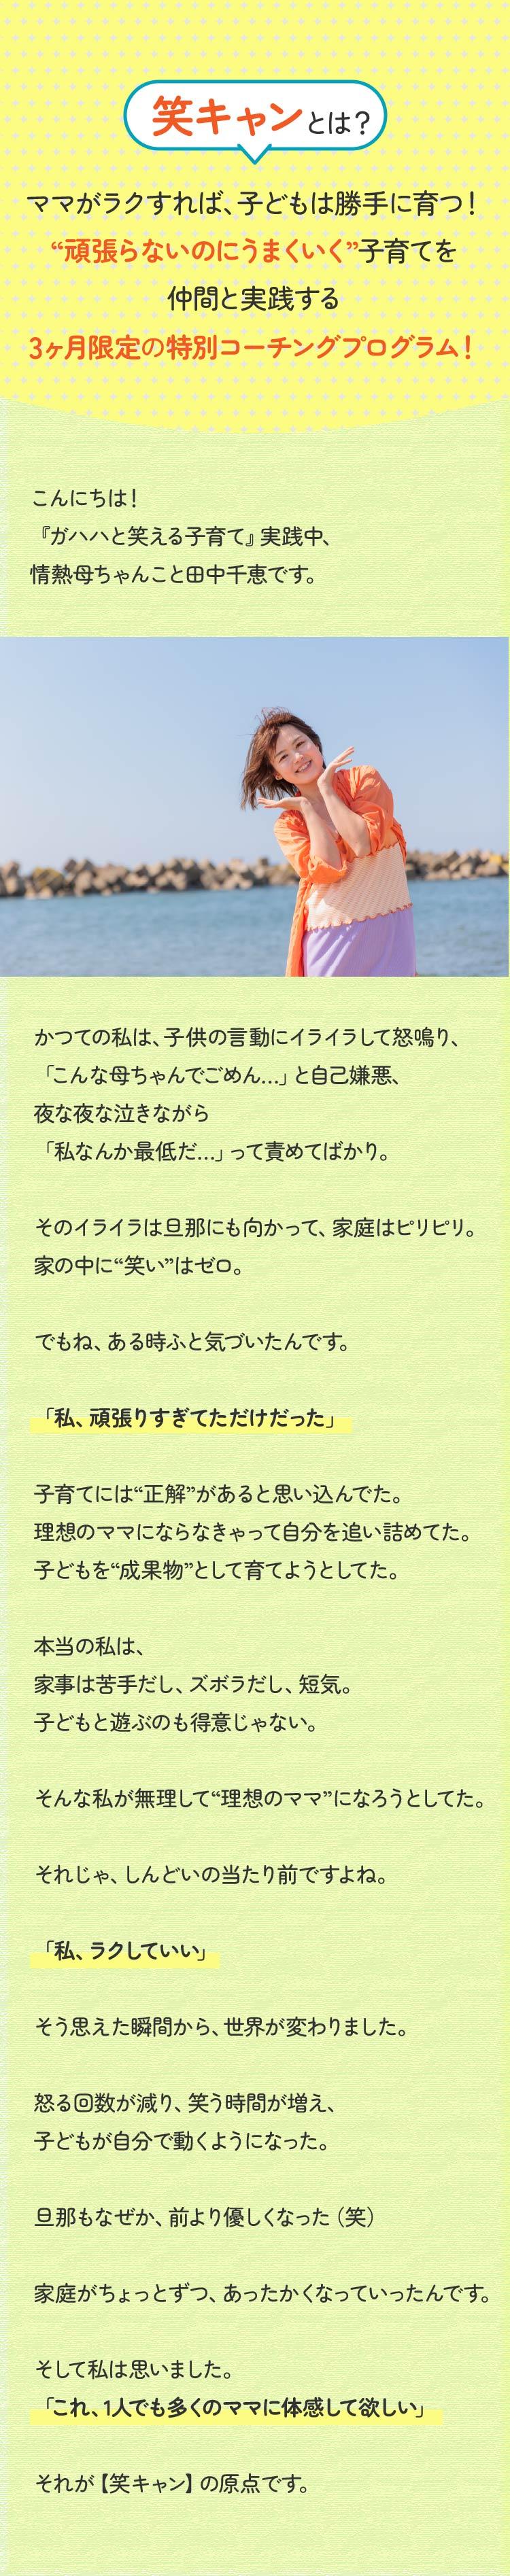 笑キャンとは?
ママがラクすれば、子どもは勝手に育つ!
“頑張らないのにうまくいく”子育てを
仲間と実践する
3ヶ月限定の特別コーチングプログラム!
こんにちは!
『ガハハと笑える子育て』実践中、
情熱母ちゃんこと田中千恵です。
かつての私は、子供の言動にイライラして怒鳴り、
「こんな母ちゃんでごめん…」と自己嫌悪、
夜な夜な泣きながら
「私なんか最低だ…」って責めてばかり。
そのイライラは旦那にも向かって、家庭はピリピリ。
家の中に“笑い”はゼロ。
でもね、ある時ふと気づいたんです。
「私、頑張りすぎてただけだった」
子育てには“正解”があると思い込んでた。
理想のママにならなきゃって自分を追い詰めてた。
子どもを“成果物”として育てようとしてた。
本当の私は、
家事は苦手だし、ズボラだし、短気。
子どもと遊ぶのも得意じゃない。
そんな私が無理して“理想のママ”になろうとしてた。
それじゃ、しんどいの当たり前ですよね。
「私、ラクしていい」
そう思えた瞬間から、世界が変わりました。
怒る回数が減り、笑う時間が増え、
子どもが自分で動くようになった。
旦那もなぜか、前より優しくなった(笑)
家庭がちょっとずつ、あったかくなっていったんです。
そして私は思いました。
「これ、1人でも多くのママに体感して欲しい」
それが【笑キャン】の原点です。